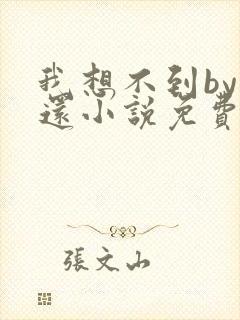 我想不到by
還小説免費
張文山